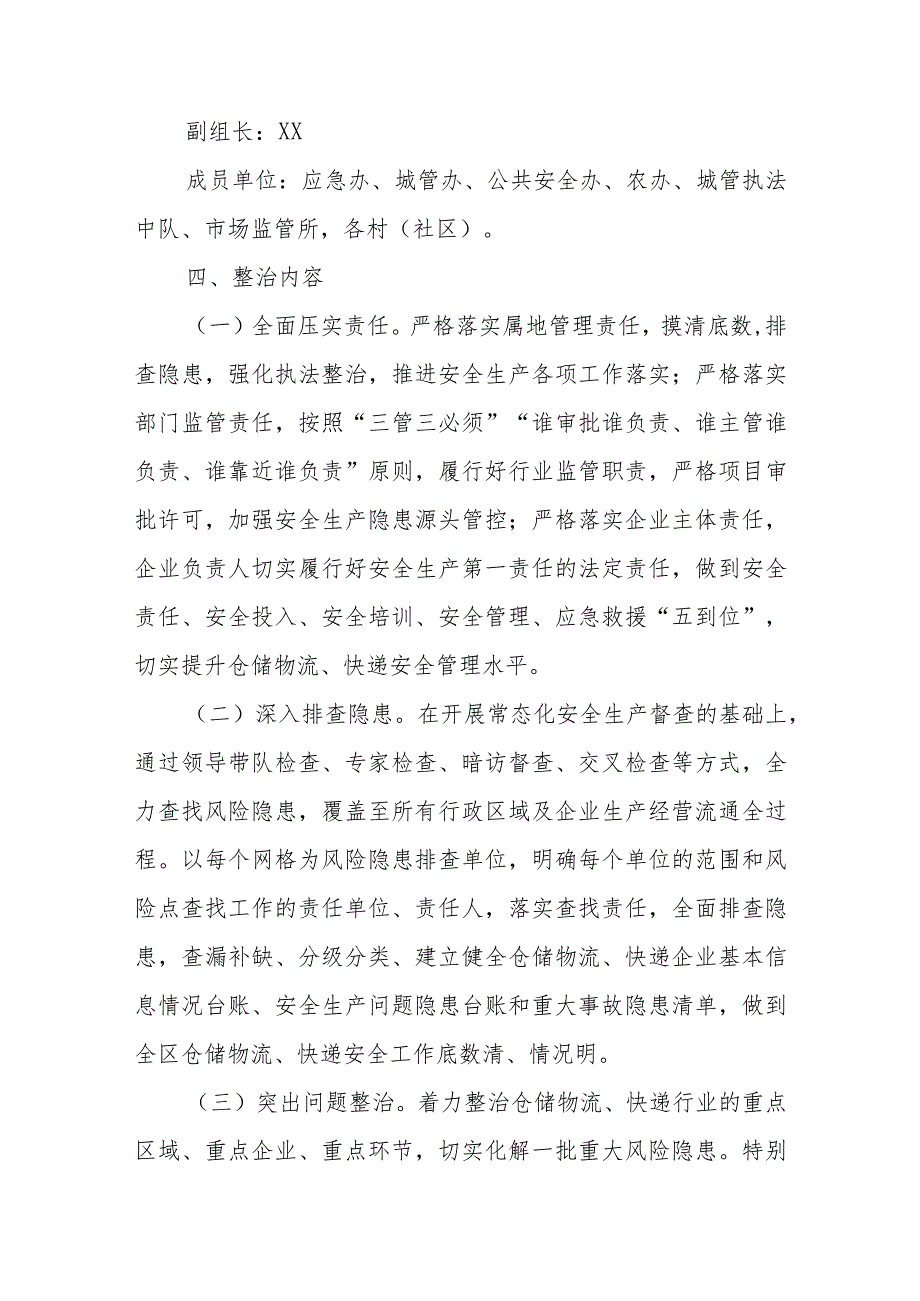 副组长：XX
成员单位：应急办、城管办、公共安全办、农办、城管执法
中队、市场监管所，各村（社区）。
四、整治内容
（一）全面压实责任。严格落实属地管理责任，摸清底数,排
查隐患，强化执法整治，推进安全生产各项工作落实；严格落实
部门监管责任，按照“三管三必须”“谁审批谁负责、谁主管谁
负责、谁靠近谁负责”原则，履行好行业监管职责，严格项目审
批许可，加强安全生产隐患源头管控；严格落实企业主体责任，
企业负责人切实履行好安全生产第一责任的法定责任，做到安全
责任、安全投入、安全培训、安全管理、应急救援“五到位”，
切实提升仓储物流、快递安全管理水平。
（二）深入排查隐患。在开展常态化安全生产督查的基础上，
通过领导带队检查、专家检查、暗访督查、交叉检查等方式，全
力查找风险隐患，覆盖至所有行政区域及企业生产经营流通全过
程。以每个网格为风险隐患排查单位，明确每个单位的范围和风
险点查找工作的责任单位、责任人，落实查找责任，全面排查隐
患，查漏补缺、分级分类、建立健全仓储物流、快递企业基本信
息情况台账、安全生产问题隐患台账和重大事故隐患清单，做到
全区仓储物流、快递安全工作底数清、情况明。
（三）突出问题整治。着力整治仓储物流、快递行业的重点
区域、重点企业、重点环节，切实化解一批重大风险隐患。特别